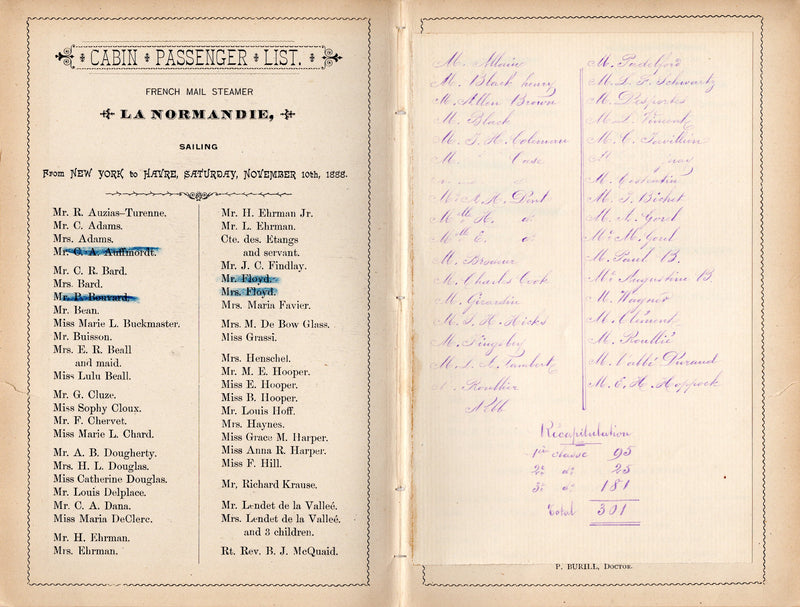 CABIN PASSENGER LIST.
FRENCH MAIL STEAMER
LA NORMANDIE,
SAILING
From NEW YORK to HAVRE, SATURDAY, NOVEMBER 10th, 1888.
Mr. R. Auzias-Turenne.
Mr. C. Adams.
Mrs. Adams.
Mr. C. A. Auffmordt.
Mr. C. R. Bard.
Mrs. Bard.
Mr. P. Bouvard.
Mr. Bean.
Miss Marie L. Buckmaster.
Mr. Buisson.
Mrs. E. R. Beall
and maid.
Miss Lulu Beall.
Mr. G. Cluze.
Miss Sophy Cloux.
Mr. F. Chervet.
Miss Marie L. Chard.
Mr. A. B. Dougherty.
Mrs. H. L. Douglas.
Miss Catherine Douglas.
Mr. Louis Delplace.
Mr. C. A. Dana.
Miss Maria DeClerc.
Mr. H. Ehrman.
Mrs. Ehrman.
Mr. H. Ehrman Jr.
Mr. L. Ehrman.
Cte. des Etangs
and servant.
Mr. J. C. Findlay.
Mr. Floyd.
Mrs. Floyd.
Mrs. Maria Favier.
Mrs. M. De Bow Glass.
Miss Grassi.
Mrs. Henschel.
Mr. M. E. Hooper.
Miss E. Hooper.
Miss B. Hooper.
Mr. Louis Hoff.
Mrs. Haynes.
Miss Grace M. Harper.
Miss Anna R. Harper.
Miss F. Hill.
Mr, Richard Krause.
Mr. Lendet de la Valleé.
Mrs. Lendet de la Valleé.
and 3 children.
Rt. Rev. B. J. McQuaid.
M. Allain
M. Black henry
M. Allen Brown
M. Black
M. J. H. Coleman
M. Case
A. H. Dent
H. do
E. do
M.
M. Charles Cook
M. Girardin
M. S. H. Hicks
M. Tingsley
M. L. A. Lambert
Roullier
M. Padelford
M. L. F. Schwartz
M. Desportes
M. L. Vimont
M. C.
M. Costentin
M. J. Bichet
M. A. Gorel
M. Gorel
M. Paul B.
Augustine B.
M. Wagner
M. Clément
M. Roullié
M. l'abbé Durand
M. E. H. Hoppock
Récapitulation
1re classe 95
2e do 25
3e do 181
Total 301
P. BURILL, Doctor.